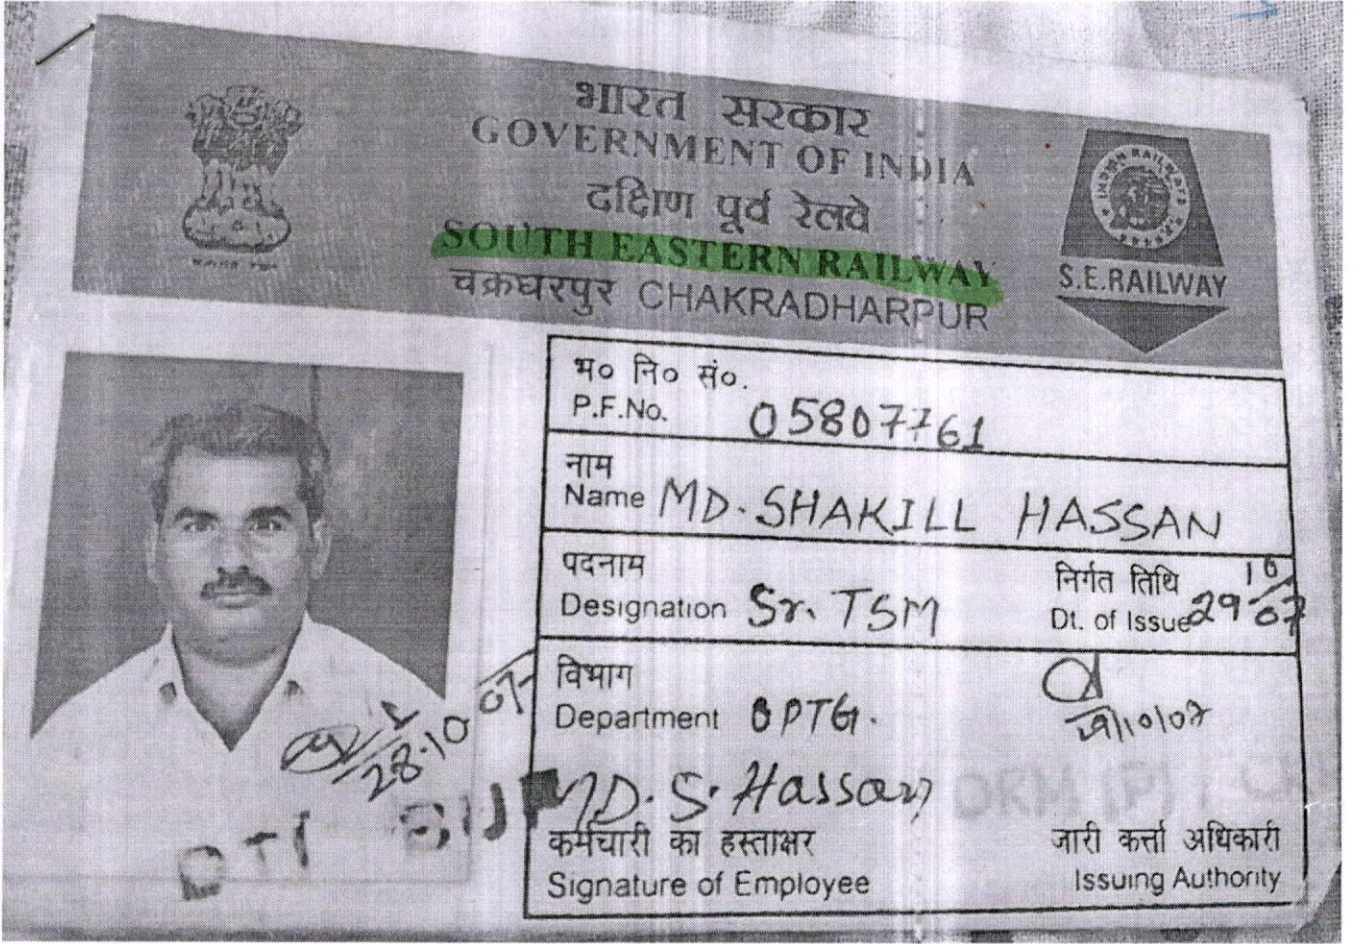 भारत सरकार
GOVERNMENT OF INDIA
दक्षिण पूर्व रेलवे
SOUTH EASTERN RAILWAY
चक्रधरपुर CHAKRADHARPUR
INDIAN RAILWAYS
S.E.RAILWAY
भ० नि० सं०.
P.F.No. 05807761
नाम
Name MD. SHAKILL HASSAN
पदनाम
Designation Sr. TSM
निर्गत तिथि
Dt. of Issue 29/10/07
विभाग
Department OPTG.
29/10/07
28.10.07
MD. S. Hassan
DRM (P)
कर्मचारी का हस्ताक्षर
Signature of Employee
जारी कर्त्ता अधिकारी
Issuing Authority